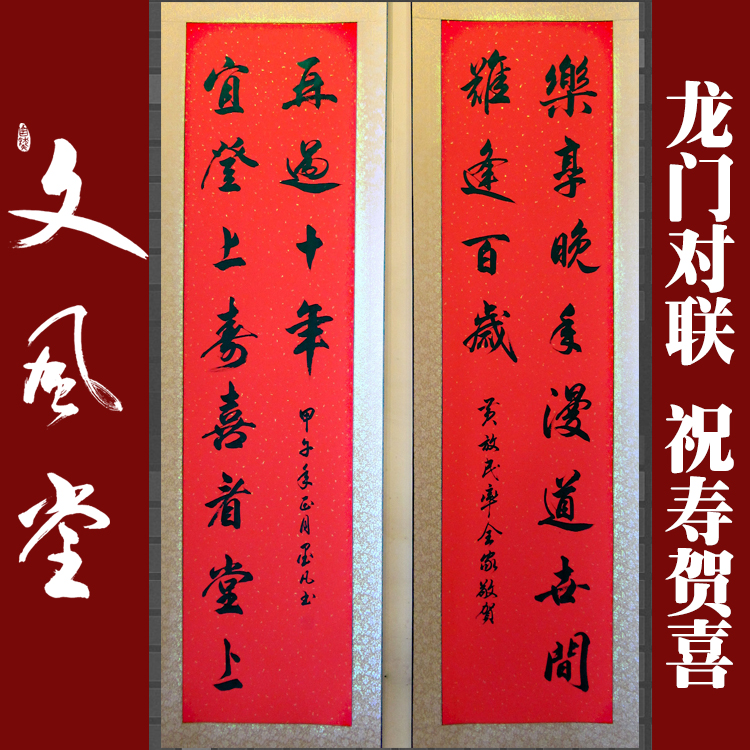 龙门对联 祝寿贺喜
樂享晚年漫道世間
難逢百歲
黄放民率全家敬賀
宜登上壽喜看堂上
再過十年
甲午年正月墨凡书
文风堂